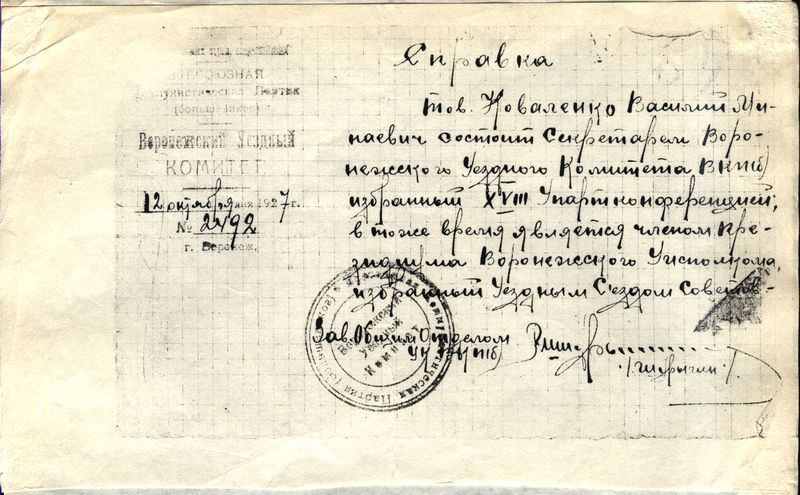 ВСЕСОЮЗНАЯ
Коммунистическая Партия
(большевиков)
Воронежский Уездный
КОМИТЕТ
12 октября дня 1927 г.
№ 2492
г. Воронеж.
Справка
Тов. Коваленко Василий Ми-
наевич состоит Секретарем Воро-
нежского Уездного Комитета ВКП(б)
избранный XVIII Упартконференцией,
в тоже время является членом пре-
зидиума Воронежского Уисполкома,
избранный Уездным Съездом Советов.
Зав. Общим Отделом
УК ВКП(б)
Воронежский
Уездный
Комитет